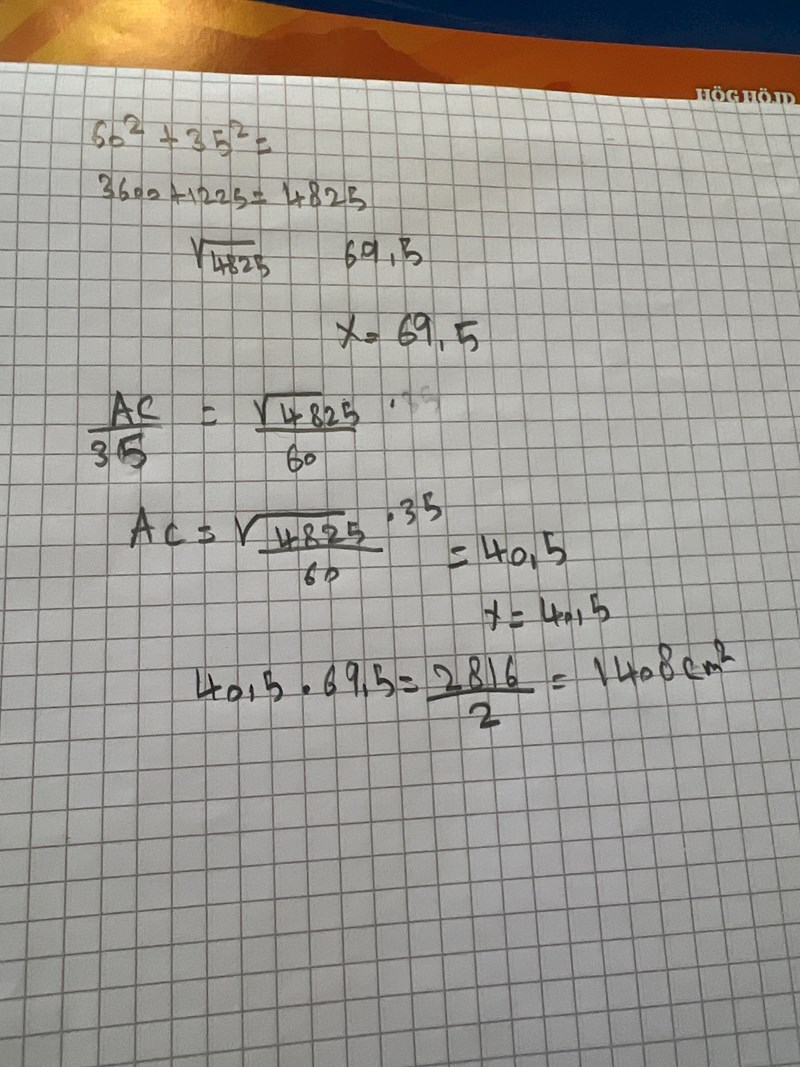 HÖG HÖJD
60² + 35² =
3600 + 1225 = 4825
√4825 69,5
x = 69,5
AC/35 = √4825/60 · 35
AC = √4825/60 · 35 = 40,5
x = 40,5
40,5 · 69,5 = 2816/2 = 1408 cm²